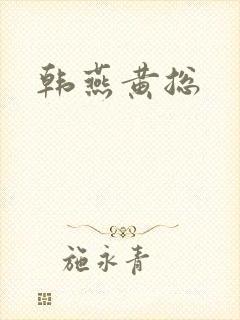 韩燕黄总
施永青